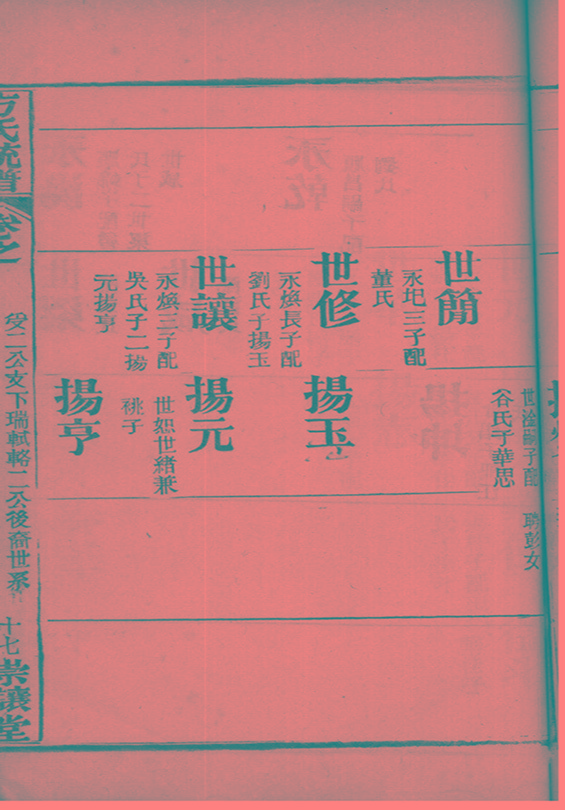 世溢嗣子配　聘彭女
谷氏子華思
世簡
永圯三子配
董氏
世修
永煥長子配
劉氏子揚玉
揚玉
世讓
永煥三子配
吳氏子二揚
元揚亨
揚元
世恕世緒兼
祧子
揚亨
方氏統譜
卷之
受二公支下瑞軾輅二公後裔世系
十七
崇讓堂